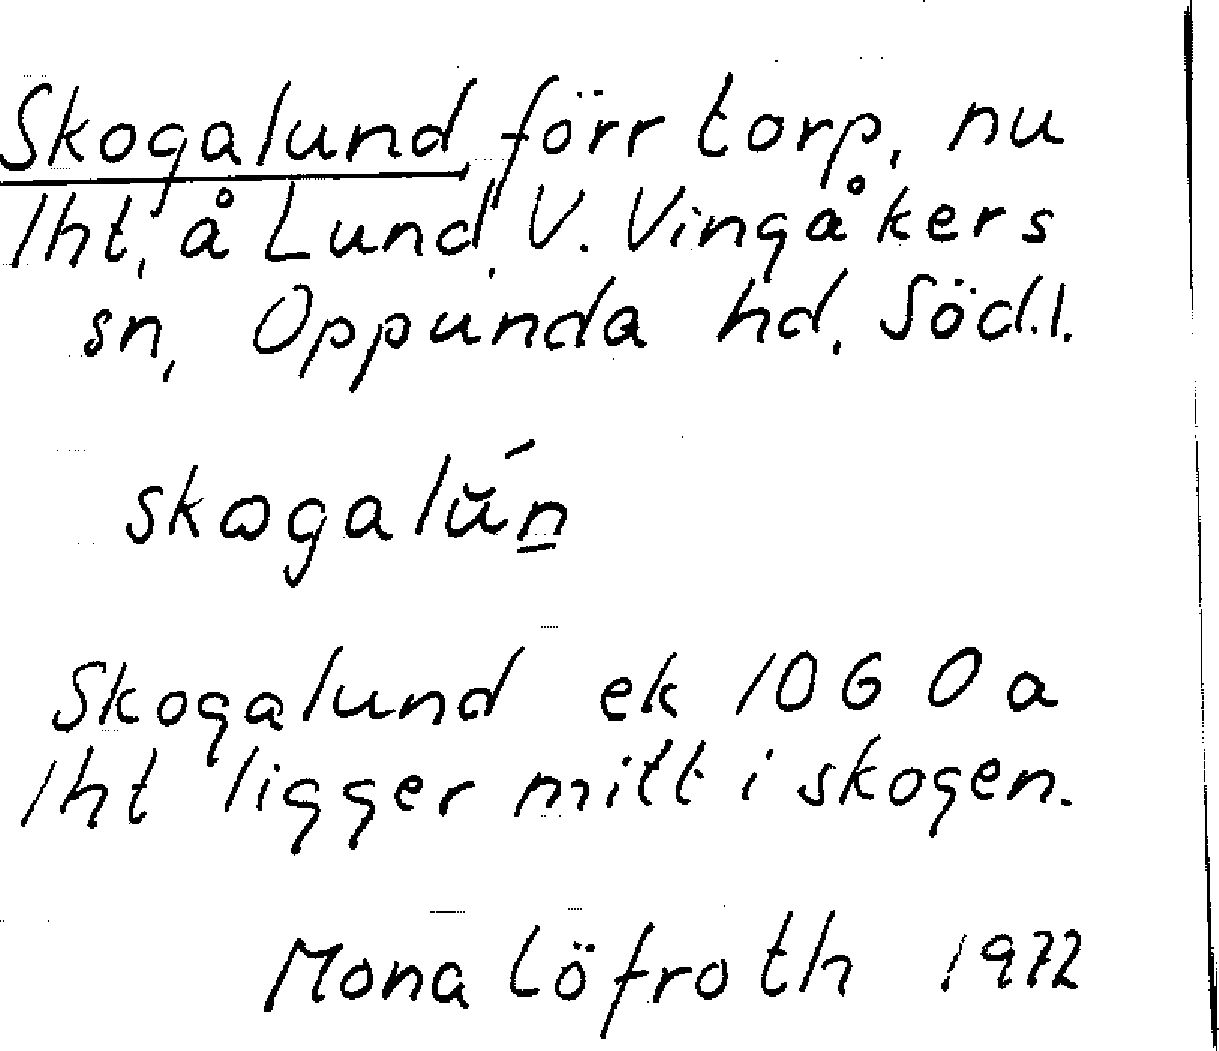 Skogalund, förr torp, nu
lht, å Lund, V. Vingåkers
sn, Oppunda hd, Södl.
skogalŭ́n̲
Skogalund ek 10G 0a
lht ligger mitt i skogen.
Mona Löfroth 1972